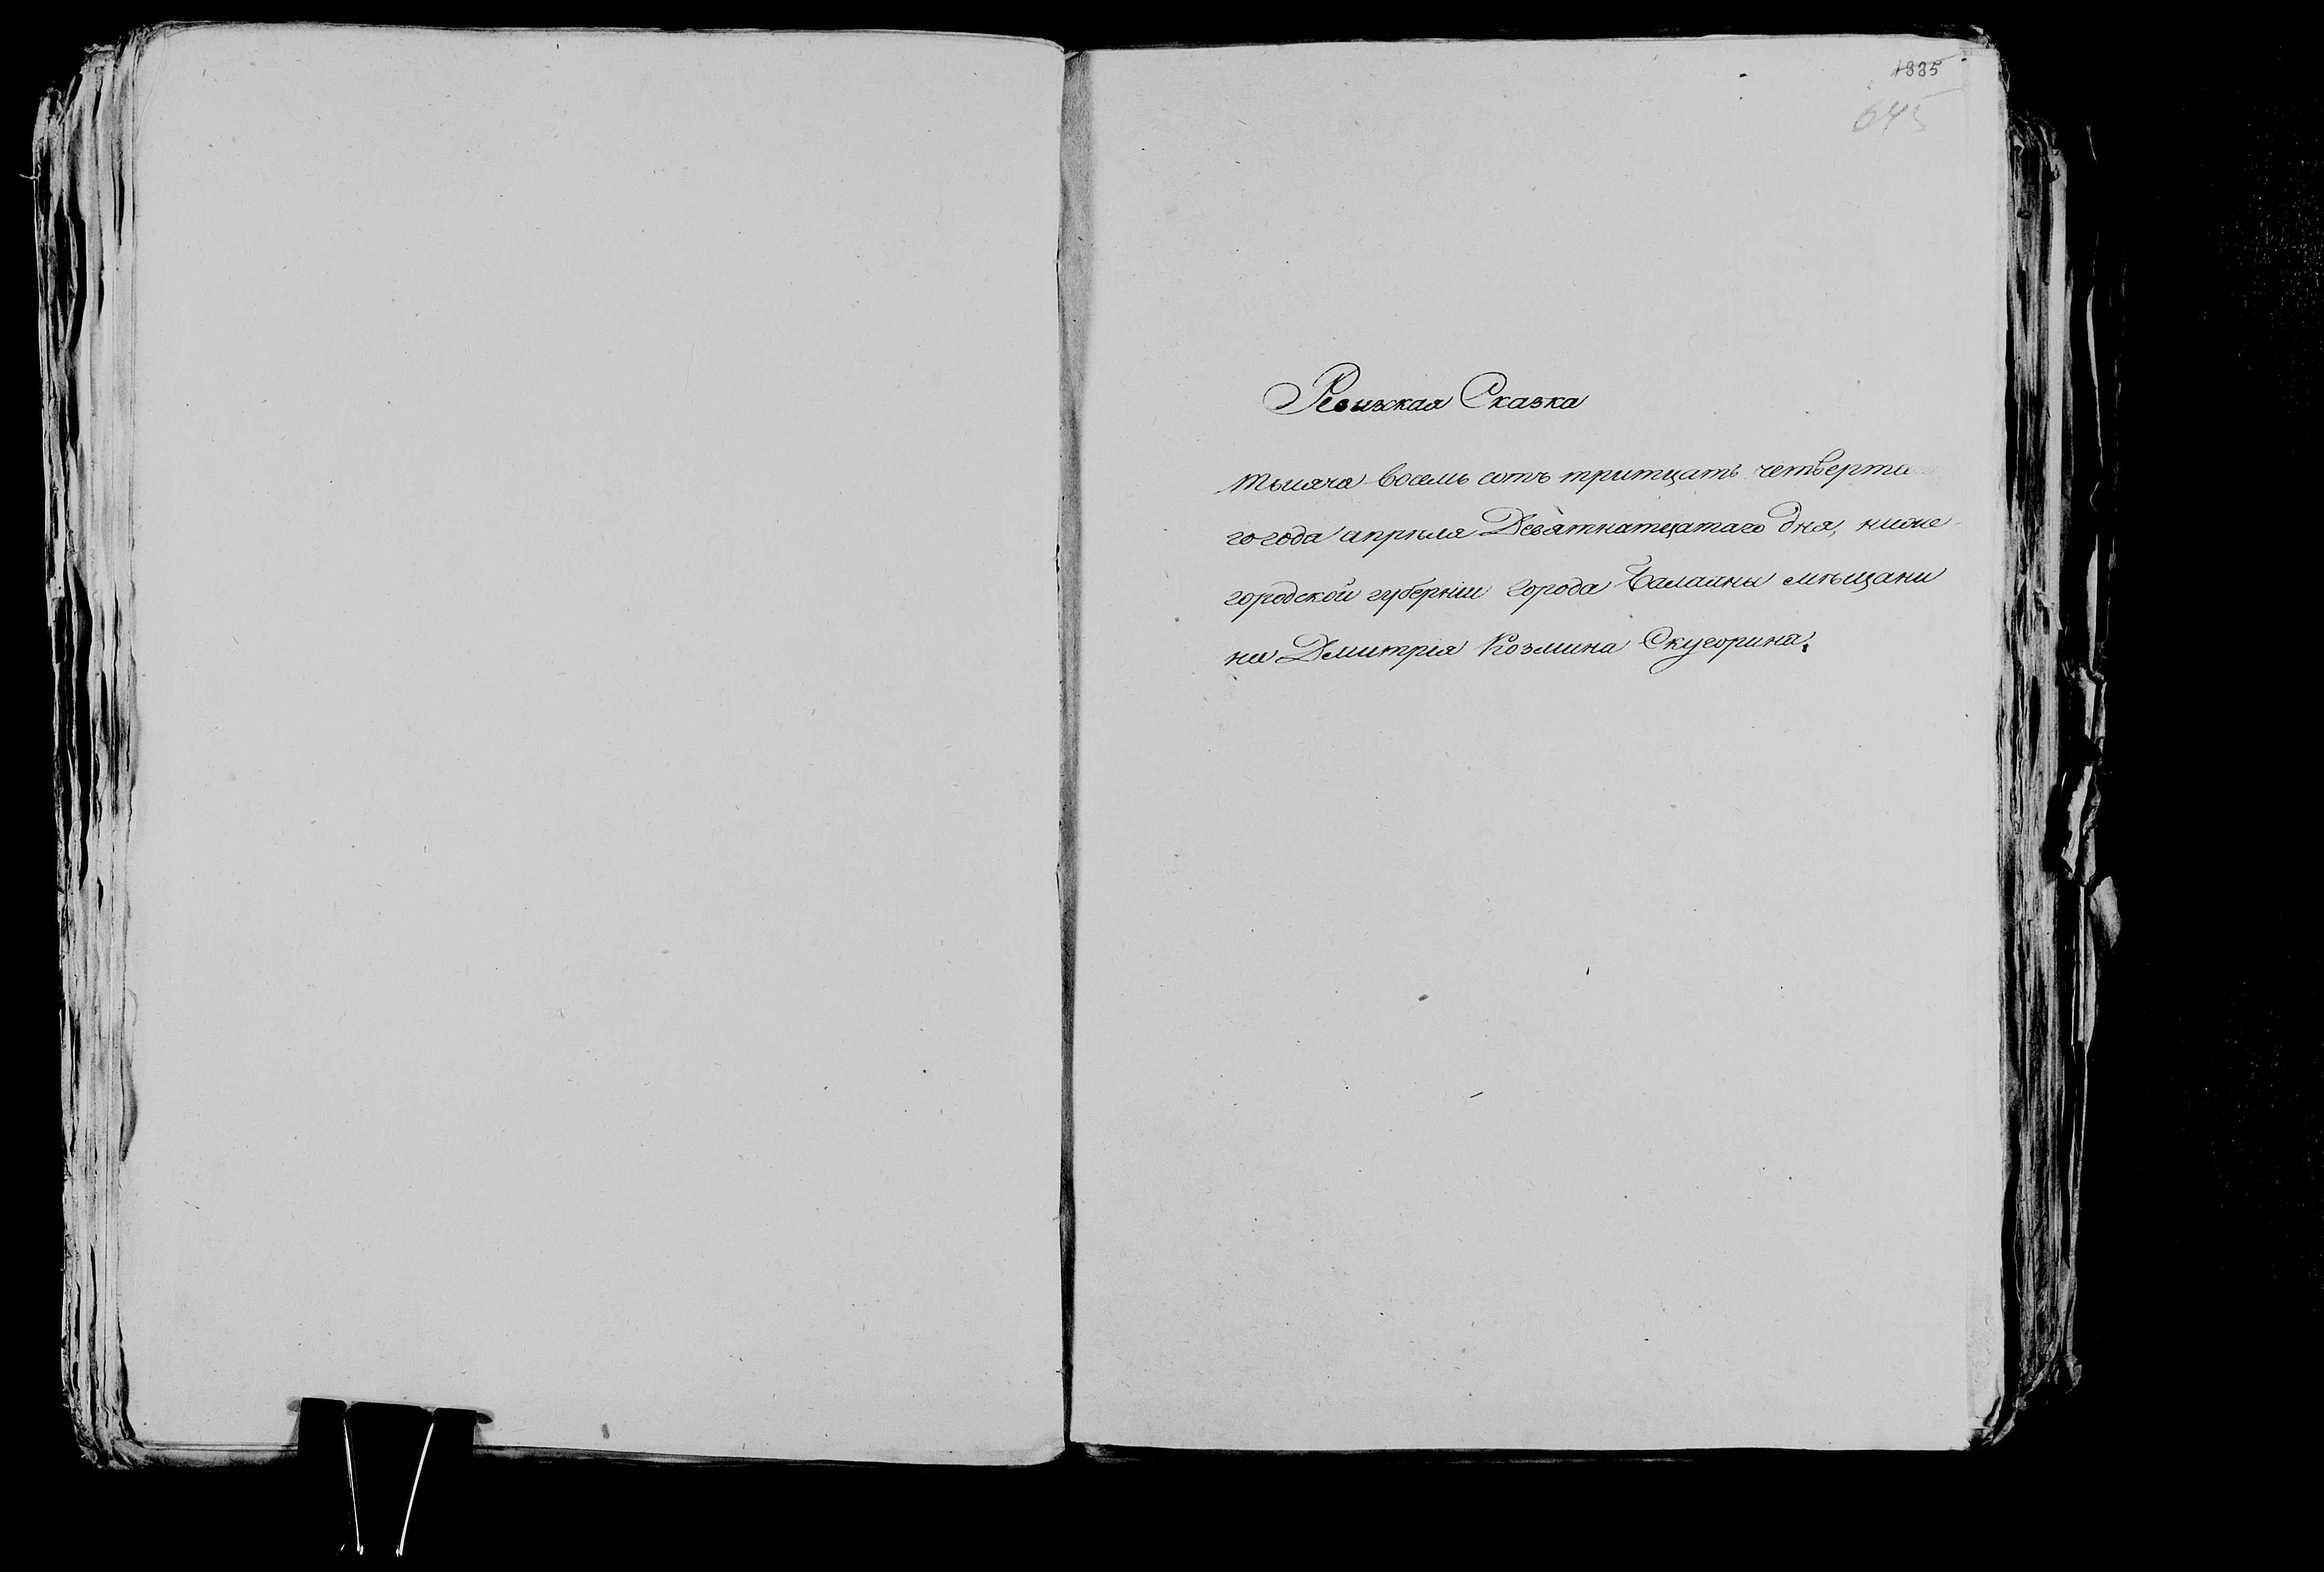 1885
645
Ревизкая Сказка
тысяча восемь сотъ тритцать четверта
го года апреля Девятнатцатаго дня, ниже
городской губернии города Балахны мѣщани
на Дмитрия Козмина Скугорина.